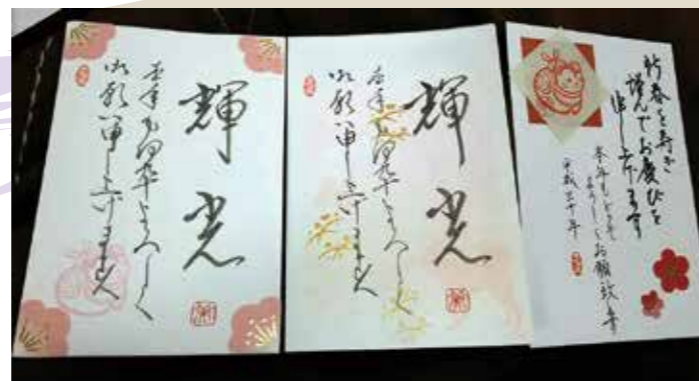 輝光
本年も何卒よろしく
御願い申し上げます
輝光
本年も何卒よろしく
御願い申し上げます
新春を寿ぎ
謹んでお慶びを
申し上げます
本年もどうぞ
よろしくお願い致します
平成三十年